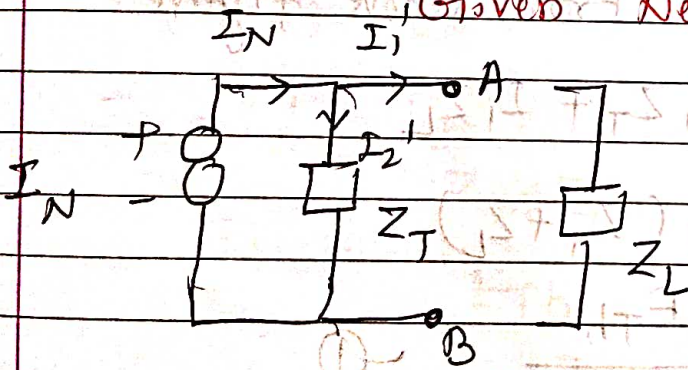 Given Ne
I_N I_1'
A
P
I_2'
I_N -
Z_T
Z_L
B